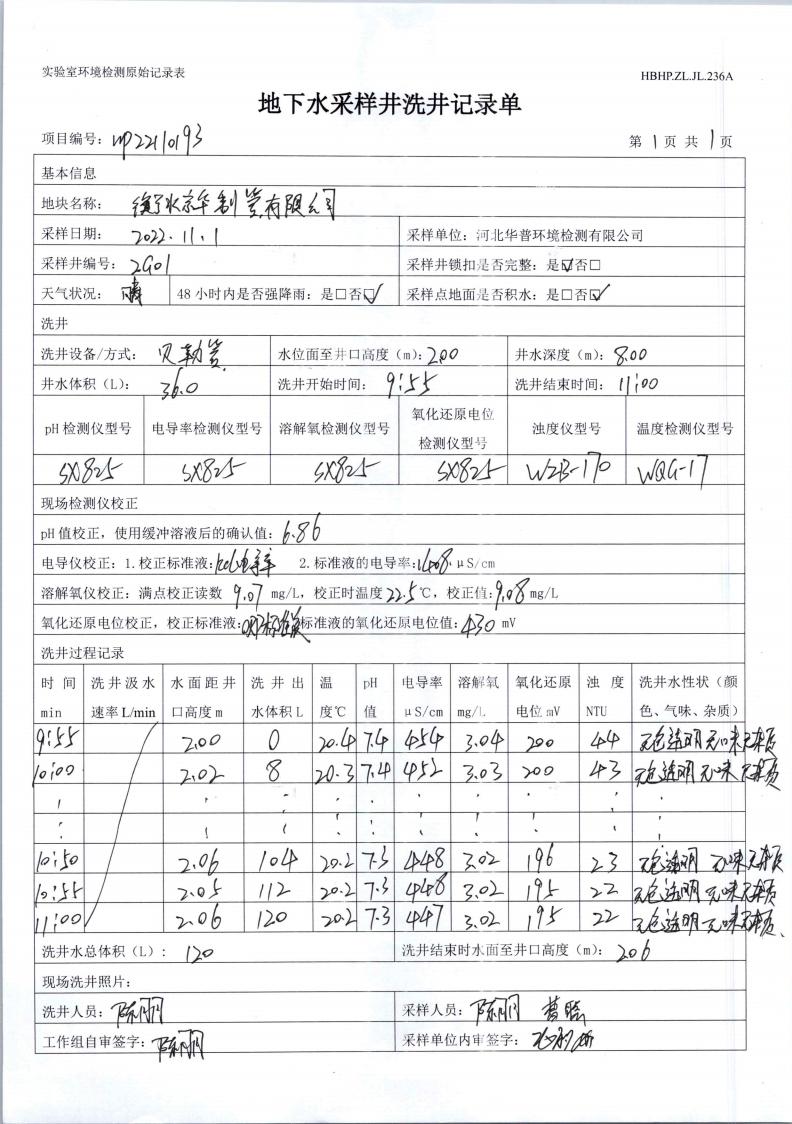 实验室环境检测原始记录表
HBHP.ZL.JL.236A
地下水采样井洗井记录单
项目编号：WP22110193
第 1 页 共 1 页
基本信息
地块名称：衡水京华制管有限公司
采样日期：2022.11.1
采样单位：河北华普环境检测有限公司
采样井编号：2G01
采样井锁扣是否完整：是☑否□
天气状况：晴
48 小时内是否强降雨：是□否☑
采样点地面是否积水：是□否☑
洗井
洗井设备/方式：贝勒管
水位面至井口高度（m）：2.00
井水深度（m）：8.00
井水体积（L）：36.0
洗井开始时间：9:55
洗井结束时间：11:00
pH 检测仪型号 电导率检测仪型号 溶解氧检测仪型号 氧化还原电位检测仪型号 浊度仪型号 温度检测仪型号
SX825 SX825 SX825 SX825 WZB-170 WQG-17
现场检测仪校正
pH 值校正，使用缓冲溶液后的确认值：6.86
电导仪校正：1.校正标准液：kcl电导率 2.标准液的电导率：1408 μS/cm
溶解氧仪校正：满点校正读数 9.07 mg/L，校正时温度 22.5℃，校正值：9.08 mg/L
氧化还原电位校正，校正标准液：标准液的氧化还原电位值：430 mV
洗井过程记录
时间 min 洗井汲水速率 L/min 水面距井口高度 m 洗井出水体积 L 温度℃ pH 值 电导率 μS/cm 溶解氧 mg/L 氧化还原电位 mV 浊度 NTU 洗井水性状（颜色、气味、杂质）
9:55 2.00 0 20.4 7.4 454 3.04 200 44 无色透明无味无杂质
10:00 2.02 8 20.3 7.4 452 3.03 200 43 无色透明无味无杂质
10:50 2.06 104 20.2 7.3 448 3.02 196 23 无色透明无味无杂质
10:55 2.05 112 20.2 7.3 448 3.02 195 22 无色透明无味无杂质
11:00 2.06 120 20.2 7.3 447 3.02 195 22 无色透明无味无杂质
洗井水总体积（L）：120
洗井结束时水面至井口高度（m）：2.06
现场洗井照片：
洗井人员：陈刚
采样人员：陈刚
工作组自审签字：陈刚
采样单位内审签字：